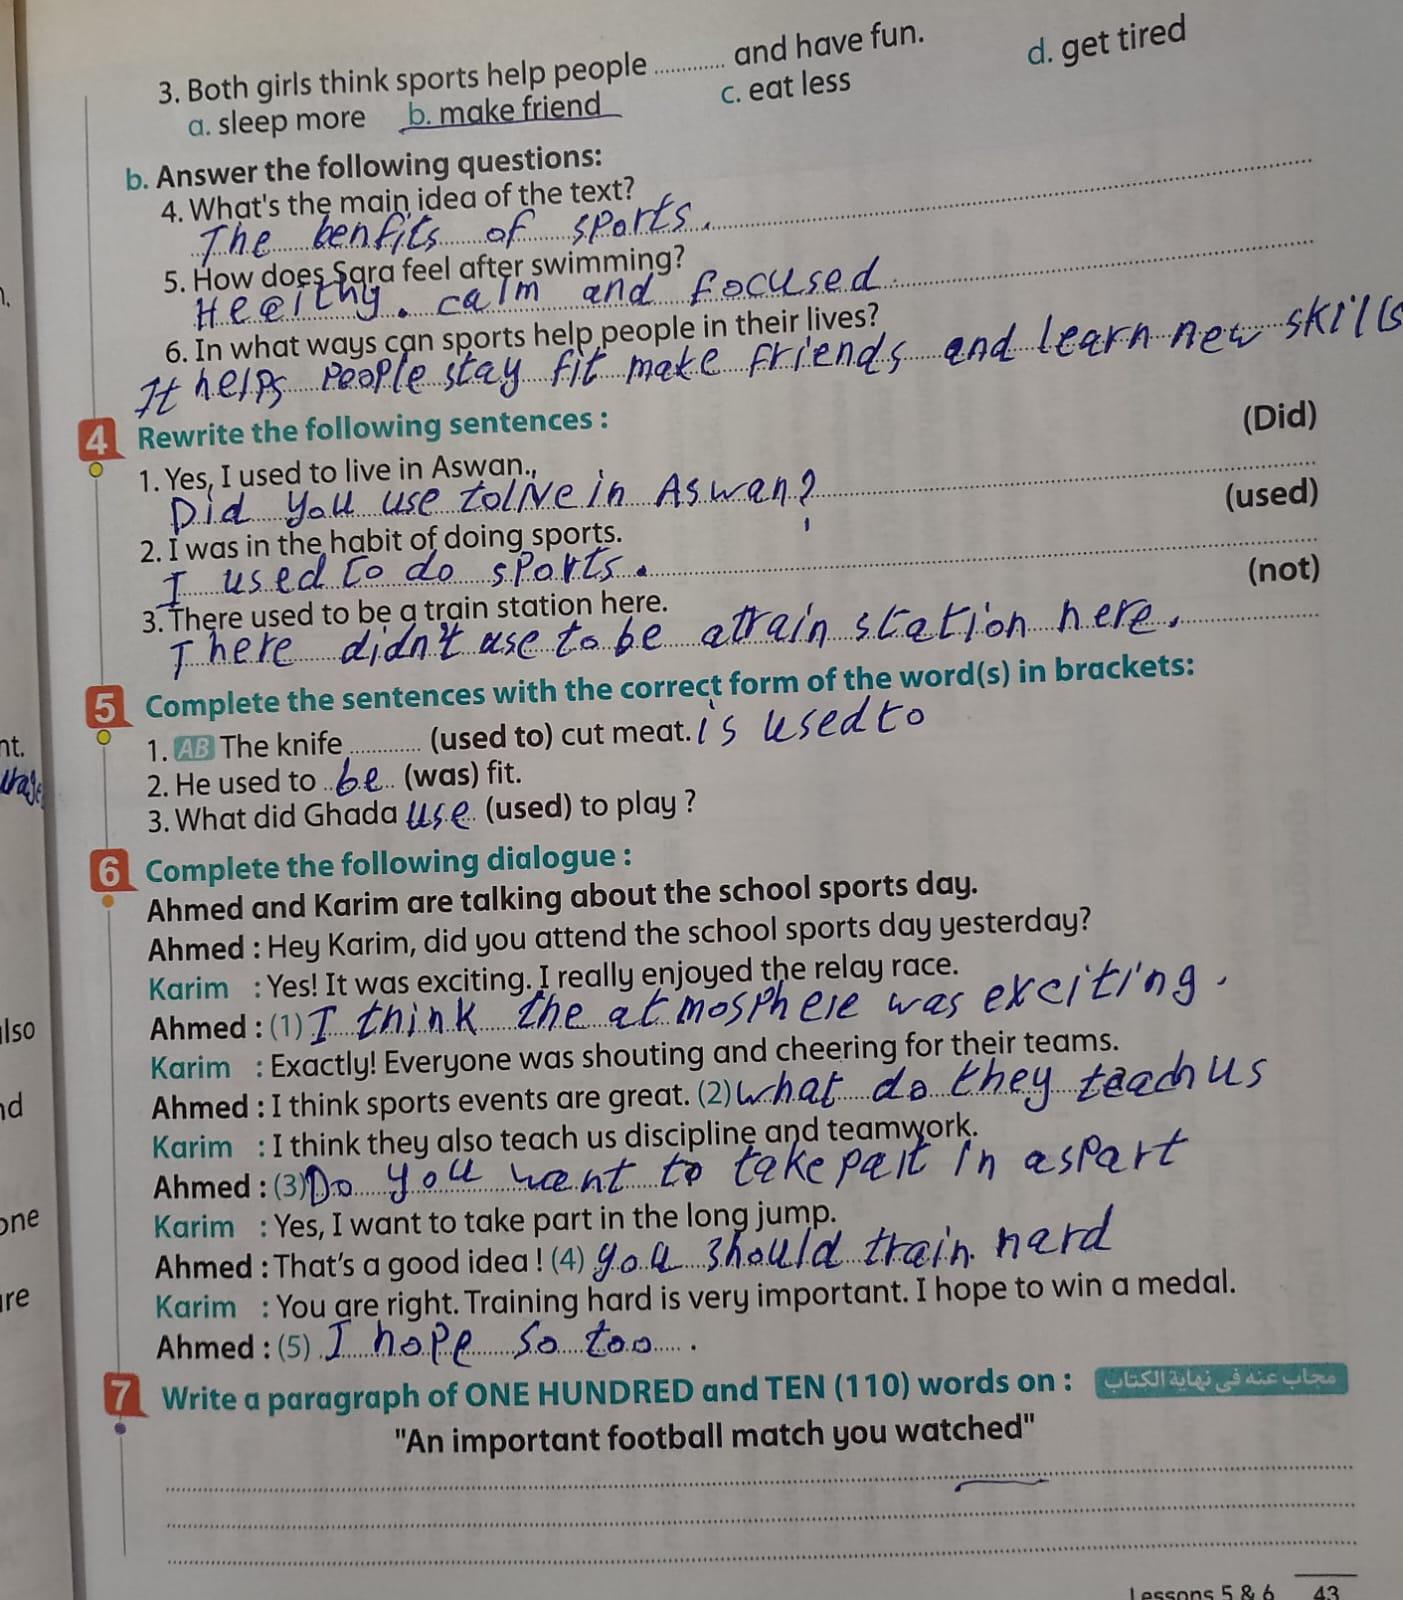 3. Both girls think sports help people ............ and have fun.
a. sleep more b. make friend c. eat less d. get tired
b. Answer the following questions:
4. What's the main idea of the text?
The benfits of sports.
5. How does Sara feel after swimming?
Heelthy. calm and focused
6. In what ways can sports help people in their lives?
It helps people stay fit make friends and learn new skills
4 Rewrite the following sentences :
1. Yes, I used to live in Aswan., (Did)
Did you use to live in Aswan?
2. I was in the habit of doing sports. (used)
I used to do sports.
3. There used to be a train station here. (not)
There didn't use to be a train station here.
5 Complete the sentences with the correct form of the word(s) in brackets:
1. AB The knife ............ (used to) cut meat. is used to
2. He used to be (was) fit.
3. What did Ghada use (used) to play ?
6 Complete the following dialogue :
Ahmed and Karim are talking about the school sports day.
Ahmed : Hey Karim, did you attend the school sports day yesterday?
Karim : Yes! It was exciting. I really enjoyed the relay race.
Ahmed : (1) I think the atmosphere was exciting.
Karim : Exactly! Everyone was shouting and cheering for their teams.
Ahmed : I think sports events are great. (2) what do they teach us
Karim : I think they also teach us discipline and teamwork.
Ahmed : (3) Do you want to take part in a spart
Karim : Yes, I want to take part in the long jump.
Ahmed : That's a good idea ! (4) you should train hard
Karim : You are right. Training hard is very important. I hope to win a medal.
Ahmed : (5) I hope so too .
7 Write a paragraph of ONE HUNDRED and TEN (110) words on : مجاب عنه فى نهاية الكتاب
"An important football match you watched"
Lessons 5 & 6 43
nt.
also
nd
one
are